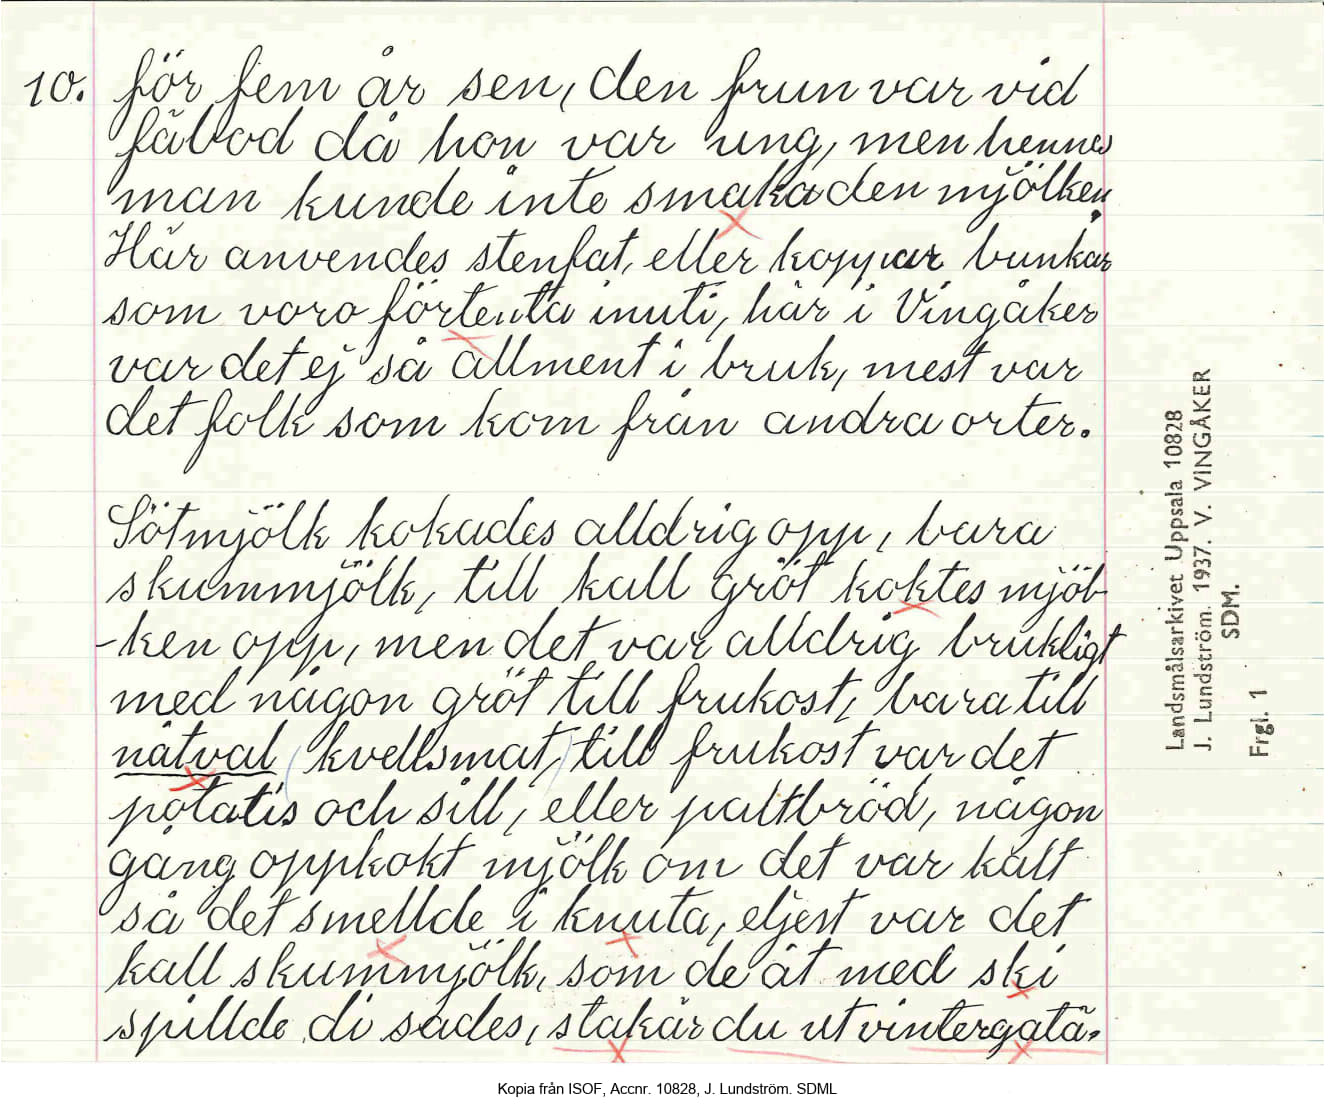 10. för fem år sen, den frun var vid
fäbod då hon var ung, men hennes
man kunde inte smaka den mjölken.
Här anvendes stenfat, eller koppar bunkar
som voro förtenta inuti, här i Vingåker
var det ej så allment i bruk, mest var
det folk som kom från andra orter.
Sötmjölk kokades alldrig opp, bara
skummjölk, till kall gröt koktes mjöl-
-ken opp, men det var alldrig brukligt
med någon gröt till frukost, bara till
nåtval (kvellsmat,) till frukost var det
potatis och sill, eller paltbröd, någon
gång oppkokt mjölk om det var kalt
så det smellde i knuta, eljest var det
kall skummjölk, som de åt med ski
spillde di sades, stakär du ut vintergatä.
Landsmålsarkivet Uppsala 10828
J. Lundström. 1937. V. VINGÅKER
SDM.
Frgl. 1
Kopia från ISOF, Accnr. 10828, J. Lundström. SDML